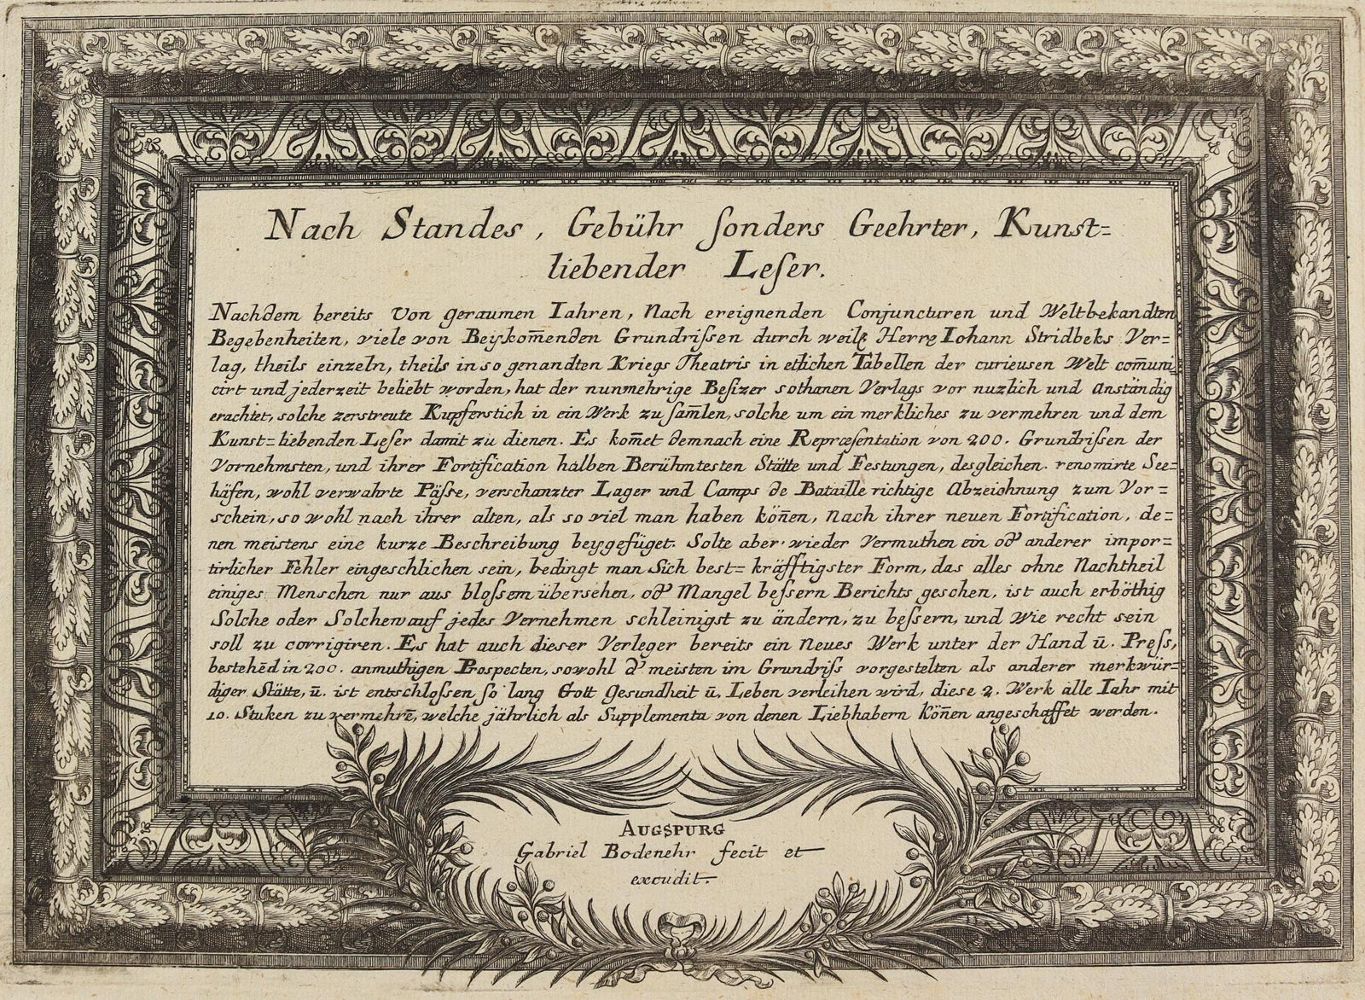 Nach Standes, Gebühr ſonders Geehrter, Kunst=
liebender Leſer.
Nachdem bereits von geraumen Iahren, Nach ereignenden Conjuncturen und Weltbekandten
Begebenheiten, viele von Beykom̅enden Grundriſsen durch weil. Herrn Iohann Stridbeks Ver=
lag, theils einzeln, theils in so genandten Kriegs Theatris in etlichen Tabellen der curieusen Welt com̅uni
cirt und jederzeit beliebt worden, hat der nunmehrige Beſizer sothanen Verlags vor nuzlich und anständig
erachtet, solche zerstreute Kupferstich in ein Werk zu sam̅len, solche um ein merkliches zu vermehren und dem
Kunst=liebenden Leſer damit zu dienen. Es kom̅et demnach eine Repræſentation von 200. Grundriſsen der
Vornehmsten, und ihrer Fortification halben Berühmtesten Stätte und Festungen, desgleichen renomirte See=
häfen, wohl verwahrte Päſse, verschanzter Lager und Camps de Bataille richtige Abzeichnung zum Vor=
schein, so wohl nach ihrer alten, als so viel man haben kön̅en, nach ihrer neuen Fortification, de=
nen meistens eine kurze Beschreibung beygefüget. Solte aber wieder Vermuthen ein od. anderer impor=
tirlicher Fehler eingeschlichen sein, bedingt man Sich best=kräfftigster Form, das alles ohne Nachtheil
einiges Menschen nur aus bloſsem übersehen, od. Mangel beſsern Berichts geschen, ist auch erböthig
Solche oder Solchen auf jedes Vernehmen schleinigst zu ändern, zu beſsern, und wie recht sein
soll zu corrigiren. Es hat auch dieser Verleger bereits ein neues Werk unter der Hand ū. Preſs,
bestehēd in 200. anmuthigen Prospecten, sowohl d. meisten im Grundriſs vorgestelten als anderer merkwür=
diger Stätte, ū. ist entschloſsen ſo lang Gott Gesundheit ū. Leben verleihen wird, diese 2. Werk alle Iahr mit
10. Stuken zu vermehrē, welche jährlich als Supplementa von denen Liebhabern kön̅en angeschaffet werden.
AUGSPURG
Gabriel Bodenehr fecit et
excudit.